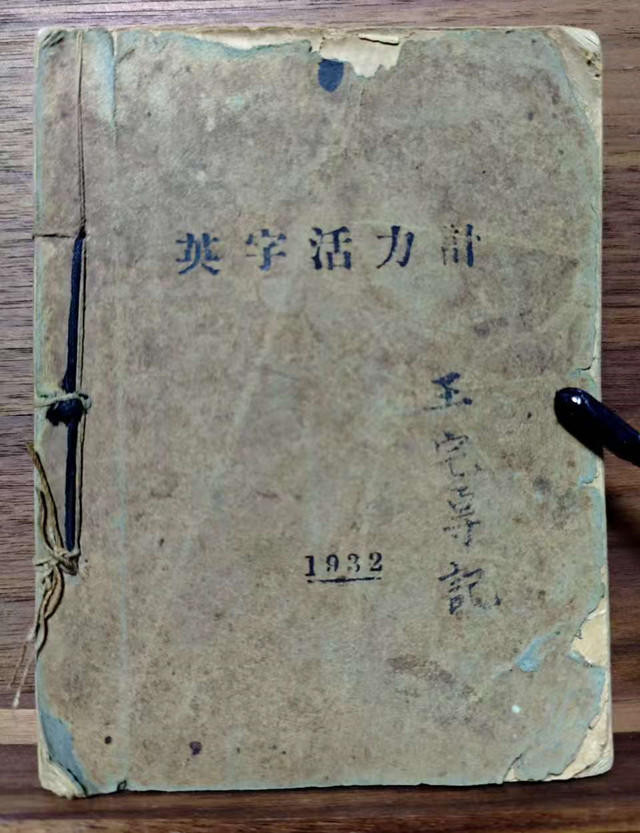 英字活力計
王宅尋記
1932